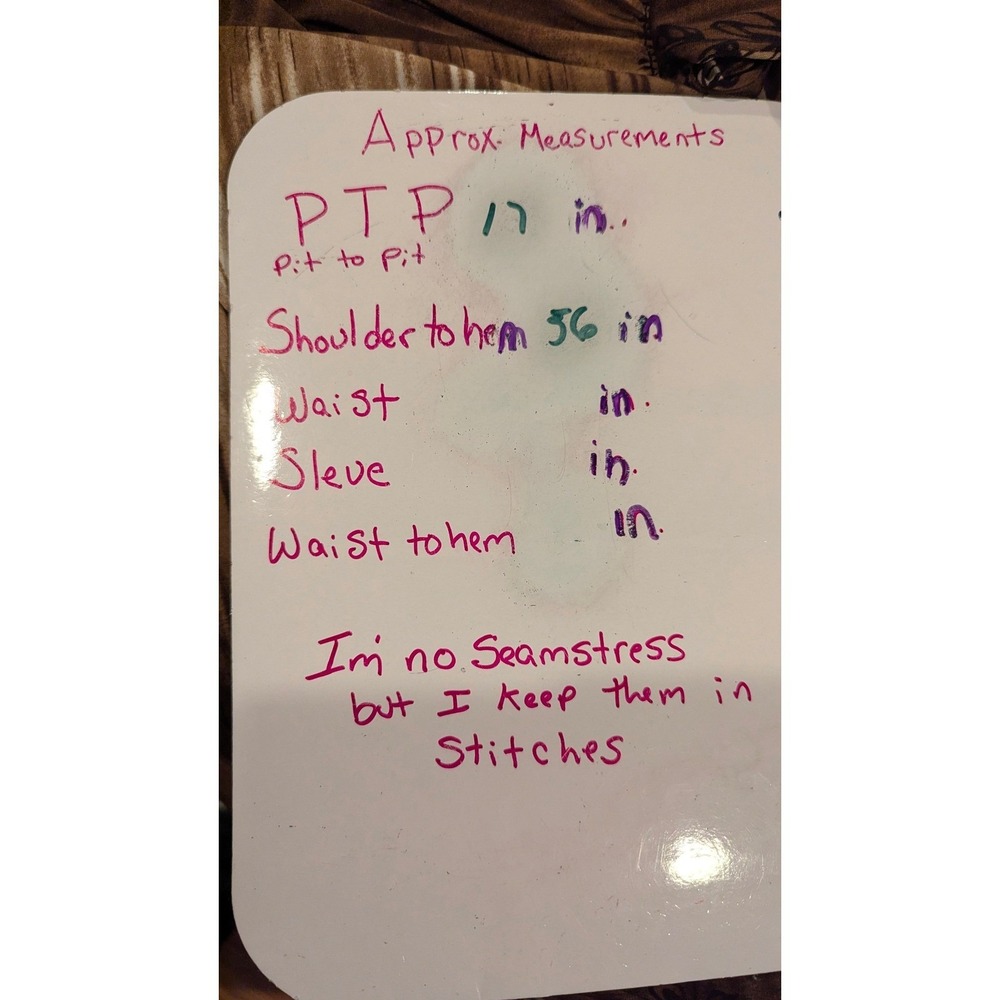 Approx. Measurements
PTP 17 in.
Pit to Pit
Shoulder to hem 56 in
Waist in.
Sleve in.
Waist to hem in.
I'm no Seamstress
but I keep them in
Stitches